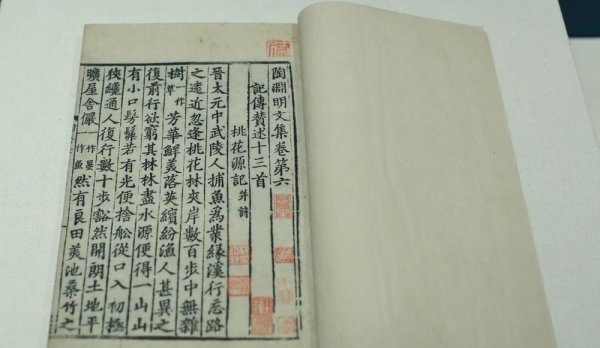 陶淵明文集卷第六
記傳贊述十三首
桃花源記并詩
晉太元中武陵人捕魚爲業緣溪行忘路
之遠近忽逢桃花林夾岸數百步中無雜
樹一作草芳華鮮美落英繽紛漁人甚異之
復前行欲窮其林林盡水源便得一山山
有小口髣髴若有光便捨船從口入初極
狹纔通人復行數十步豁然開朗土地平
曠屋舍儼一作晏一作魚然有良田美池桑竹之